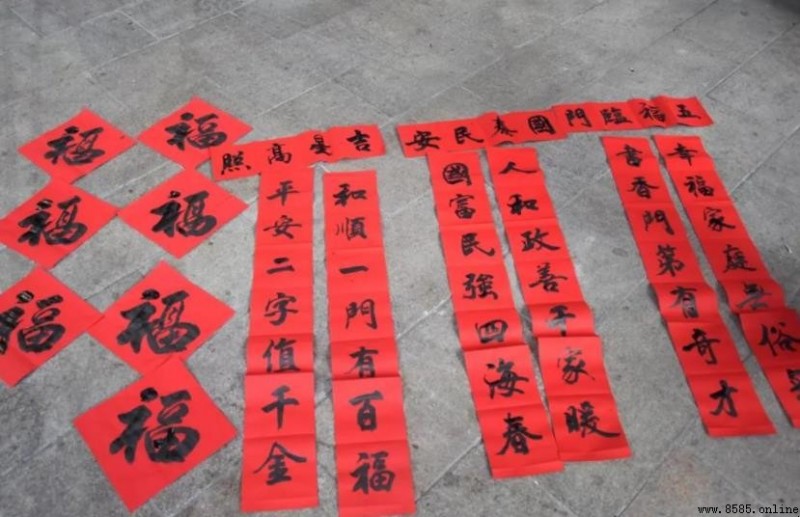 福
福
福
福
福
福
福
吉星高照
和順一門有百福
平安二字值千金
五福臨門國泰民安
幸福家庭無俗
書香門第有奇才
人和政善千家暖
國富民強四海春
www.8585.online